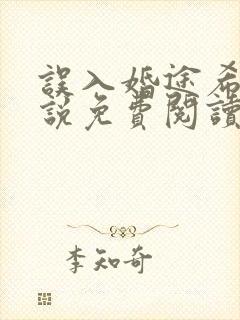 誤入婚途希
說免費閱讀
李知奇